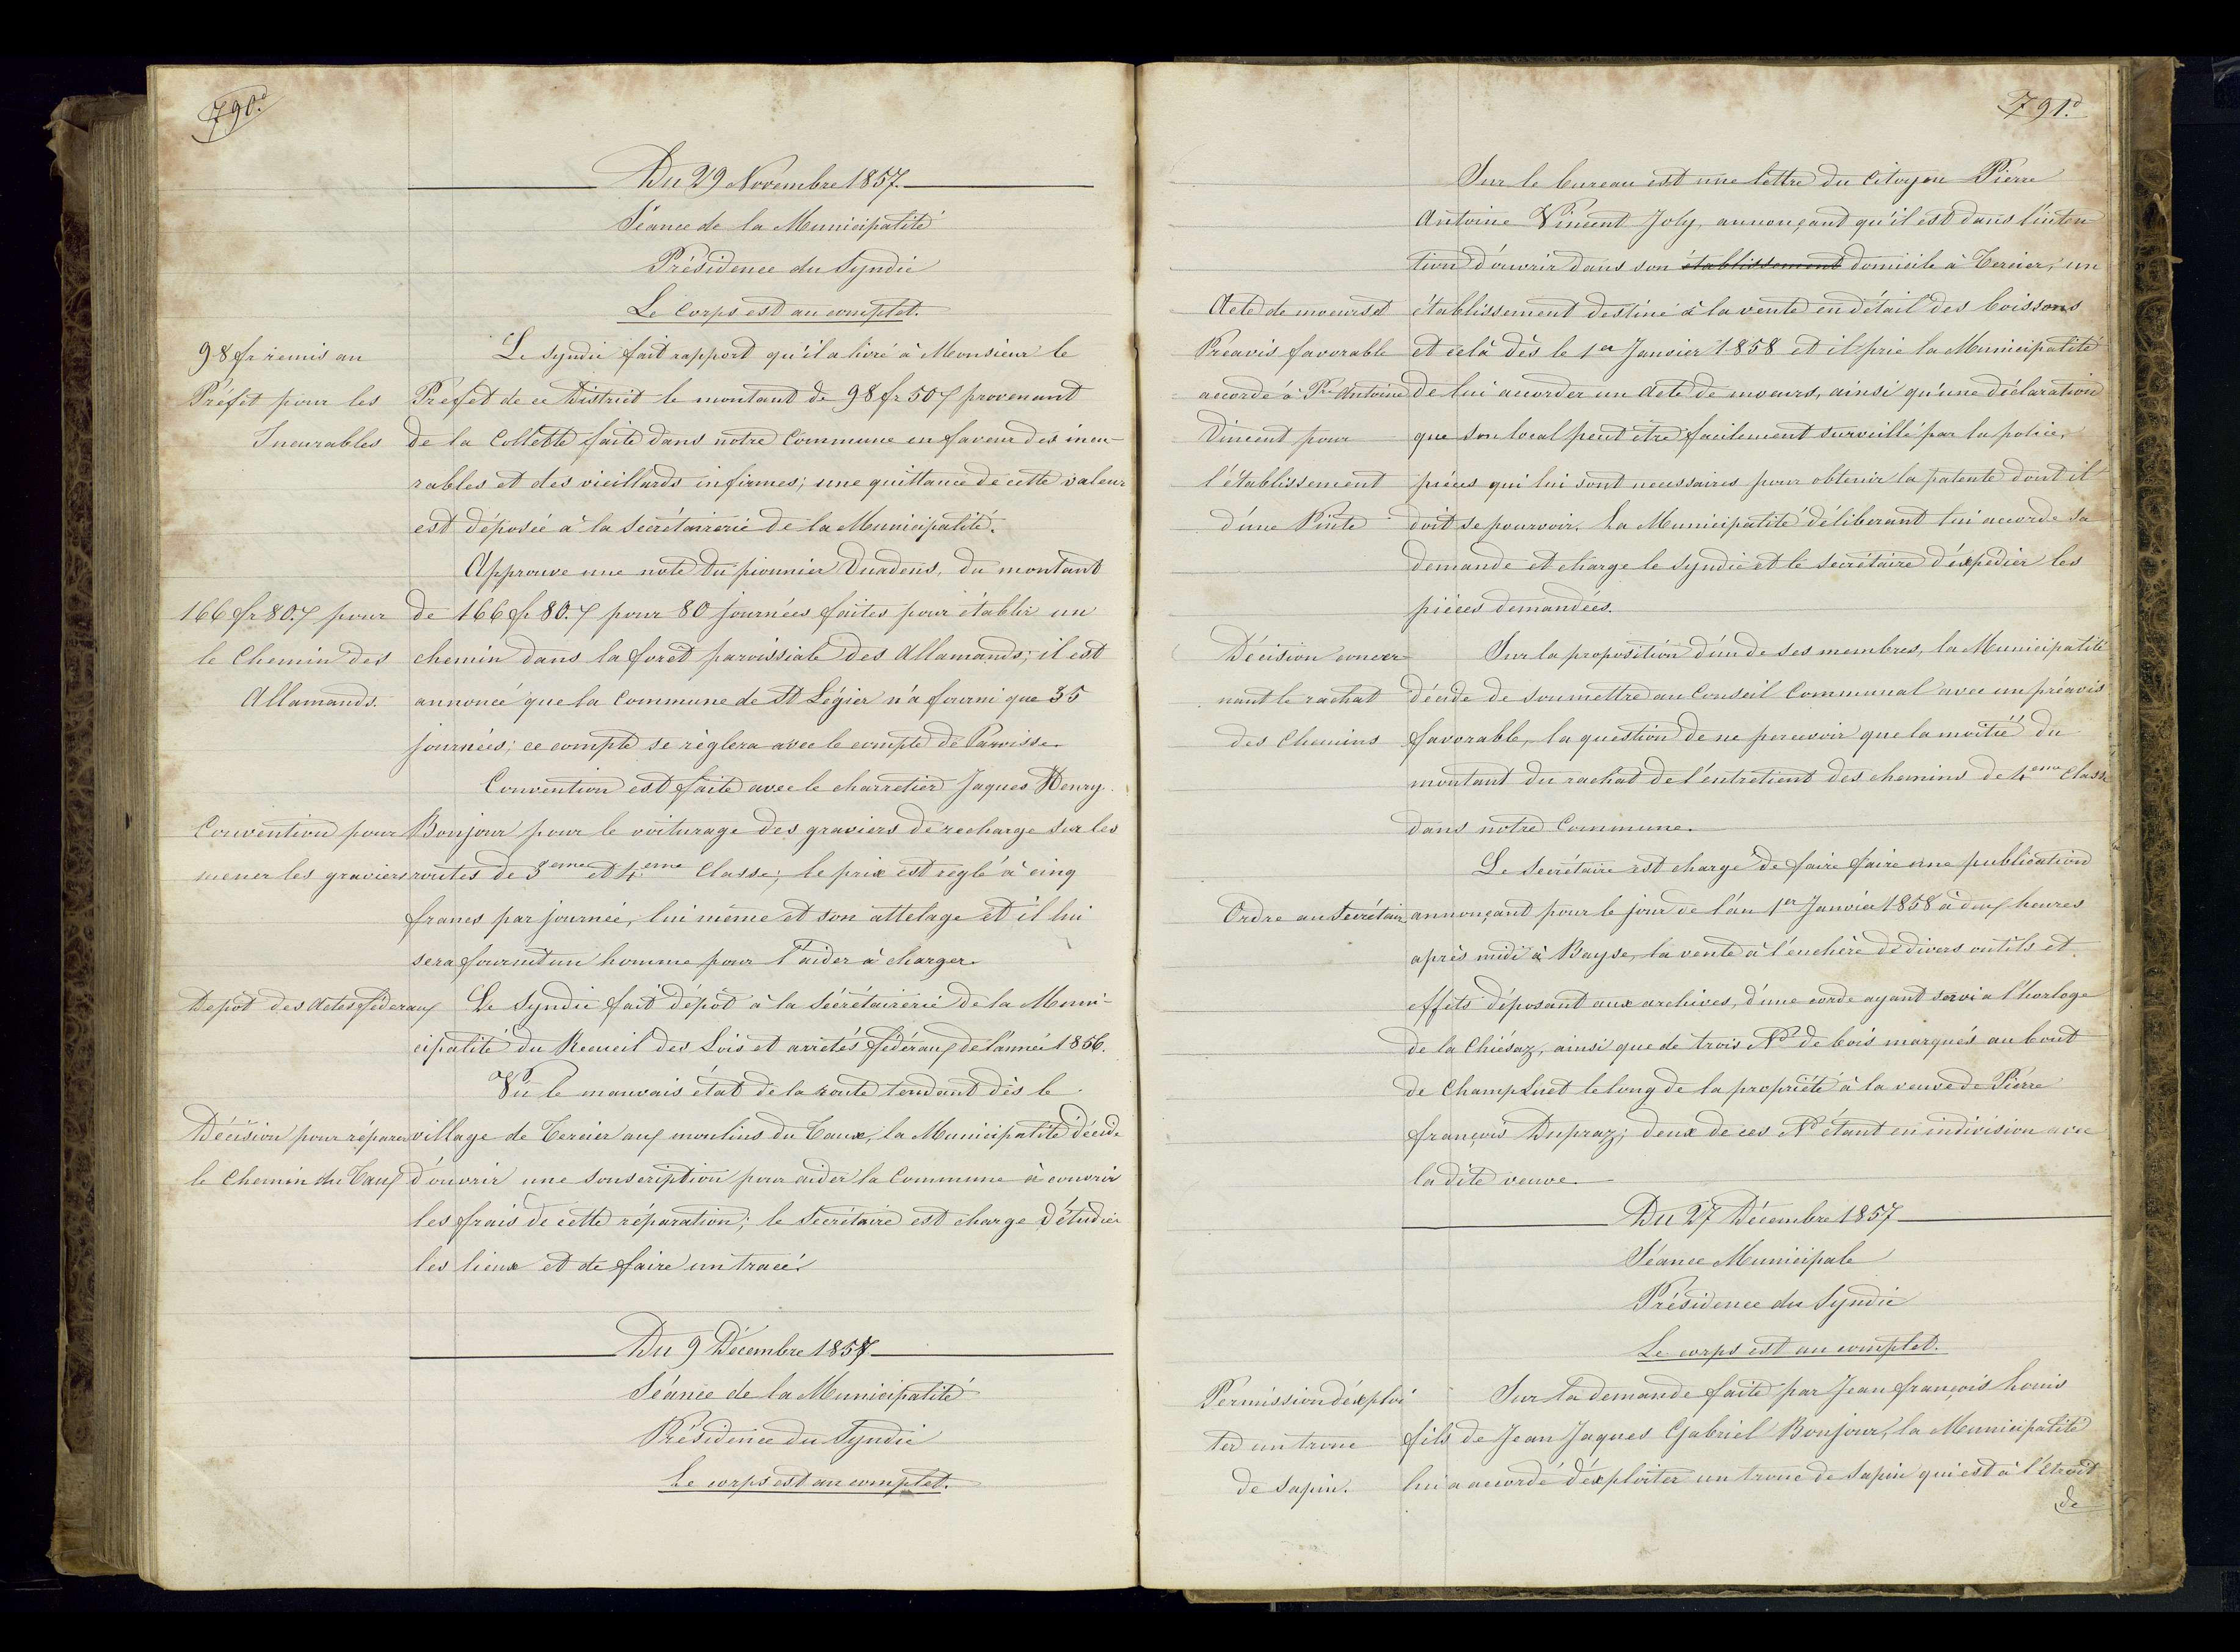 790.
Du 29 Novembre 1857.
Séance de la Municipalité
Présidence du Syndic
Le Corps est au complet.
98 fr remis au
Préfet pour les
Incurables
Le Syndic fait rapport qu'il a livré à Monsieur le
Préfet de ce District le montant de 98 fr 50 provenant
de la Collette faite dans notre Commune en faveur des incu-
rables et des vieillards infirmes; une quittance de cette valeur
est déposée à la Secrétairerie de la Municipalité.
Approuve une note du pionnier Duadens, du montant
166 fr 80. pour
le Chemin des
Allamands.
de 166 fr 80. pour 80 journées faites pour établir un
chemin dans la foret paroissiale des Allamands; il est
annoncé que la Commune de St Légier n'a fourni que 35
journées; ce compte se règlera avec le compte de Paroisse.
Convention est faite avec le charretier Jaques Henry
Convention pour
mener les graviers
Bonjour pour le voiturage des graviers de recharge sur les
routes de 3eme et 4eme Classe; le prix est règlé à cinq
francs par journée, lui même et son attelage et il lui
sera fournit un homme pour l'aider à charger.
Depôt des Actes fédéraux
Le Syndic fait dépôt à la Sécrétairerie de la Muni-
cipalité du Recueil des Lois et arrêtés fédéraux de l'année 1856.
Vû le mauvais état de la route tendant dès le
Décision pour réparer
le Chemin du Caux
village de Tercier aux moulins du Caux, la Municipalité décide
d'ouvrir une souscription pour aider la Commune à couvrir
les frais de cette réparation; le Secrétaire est charge d'étudier
les lieux et de faire un tracé.
Du 9 Décembre 1857.
Séance de la Municipalité
Présidence du Syndic
Le corps est au complet.
791.
Sur le bureau est une lettre du Citoyen Pierre
Antoine Vincent Joly, annonçant qu'il est dans l'inten-
tion d'ouvrir dans son établissement domicile à Tercier, un
Acte de moeurs et
Preavis favorable
accordé à Pre Antoine
Vincent pour
l'établissement
d'une Pinte
établissement destiné à la vente en détail des boissons
et celà dès le 1er Janvier 1858 et il prie la Municipalité
de lui accorder un Acte de moeurs, ainsi qu'une déclaration
que son local peut être facilement surveillé par la police,
pièces qui lui sont necessaires pour obtenir la patente dont il
doit se pourvoir. La Municipalité déliberant lui accorde sa
demande et charge le Syndic et le Secrétaire d'éxpédier les
pièces demandées.
Décision concer-
nant le rachat
des Chemins
Sur la proposition d'un de ses membres, la Municipalité
décide de soumettre au Conseil Communal avec un préavis
favorable, la question de ne percevoir que la moitié du
montant du rachat de l'entretient des chemins de 4eme Classe
dans notre Commune.
Le Secrétaire est chargé de faire faire une publication
Ordre au Secrétaire
annonçant pour le jour de l'an 1er Janvier 1858 à deux heures
après midi à Bayse, la vente à l'enchère de divers outils et
effets déposant aux archives, d'une corde ayant servi à l'horloge
de la Chiésaz, ainsi que de trois No de bois marqués au bout
de Champ Luet le long de la propriété à la veuve de Pierre
françois Dupraz; deux de ces No étant en indivision avec
la dite veuve.
Du 27 Décembre 1857
Séance Municipale
Présidence du Syndic
Le corps est au complet.
Permission d'éxploi
ter un tronc
de sapin.
Sur la demande faite par Jean françois Louis
fils de Jean Jaques Gabriel Bonjour, la Municipalité
lui a accordé d'éxploiter un tronc de sapin qui est à l'Etroit
de